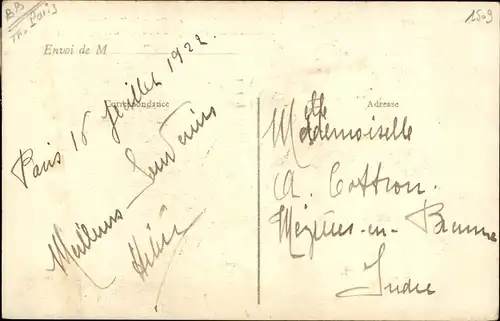 BB
Th. Paris
1509
Envoi de M
Paris 18 Juillet 1922
Correspondance
Meilleurs Souvenirs
Adresse
Mademoiselle
A. Cottron
Mézières-en-Brenne
Indre